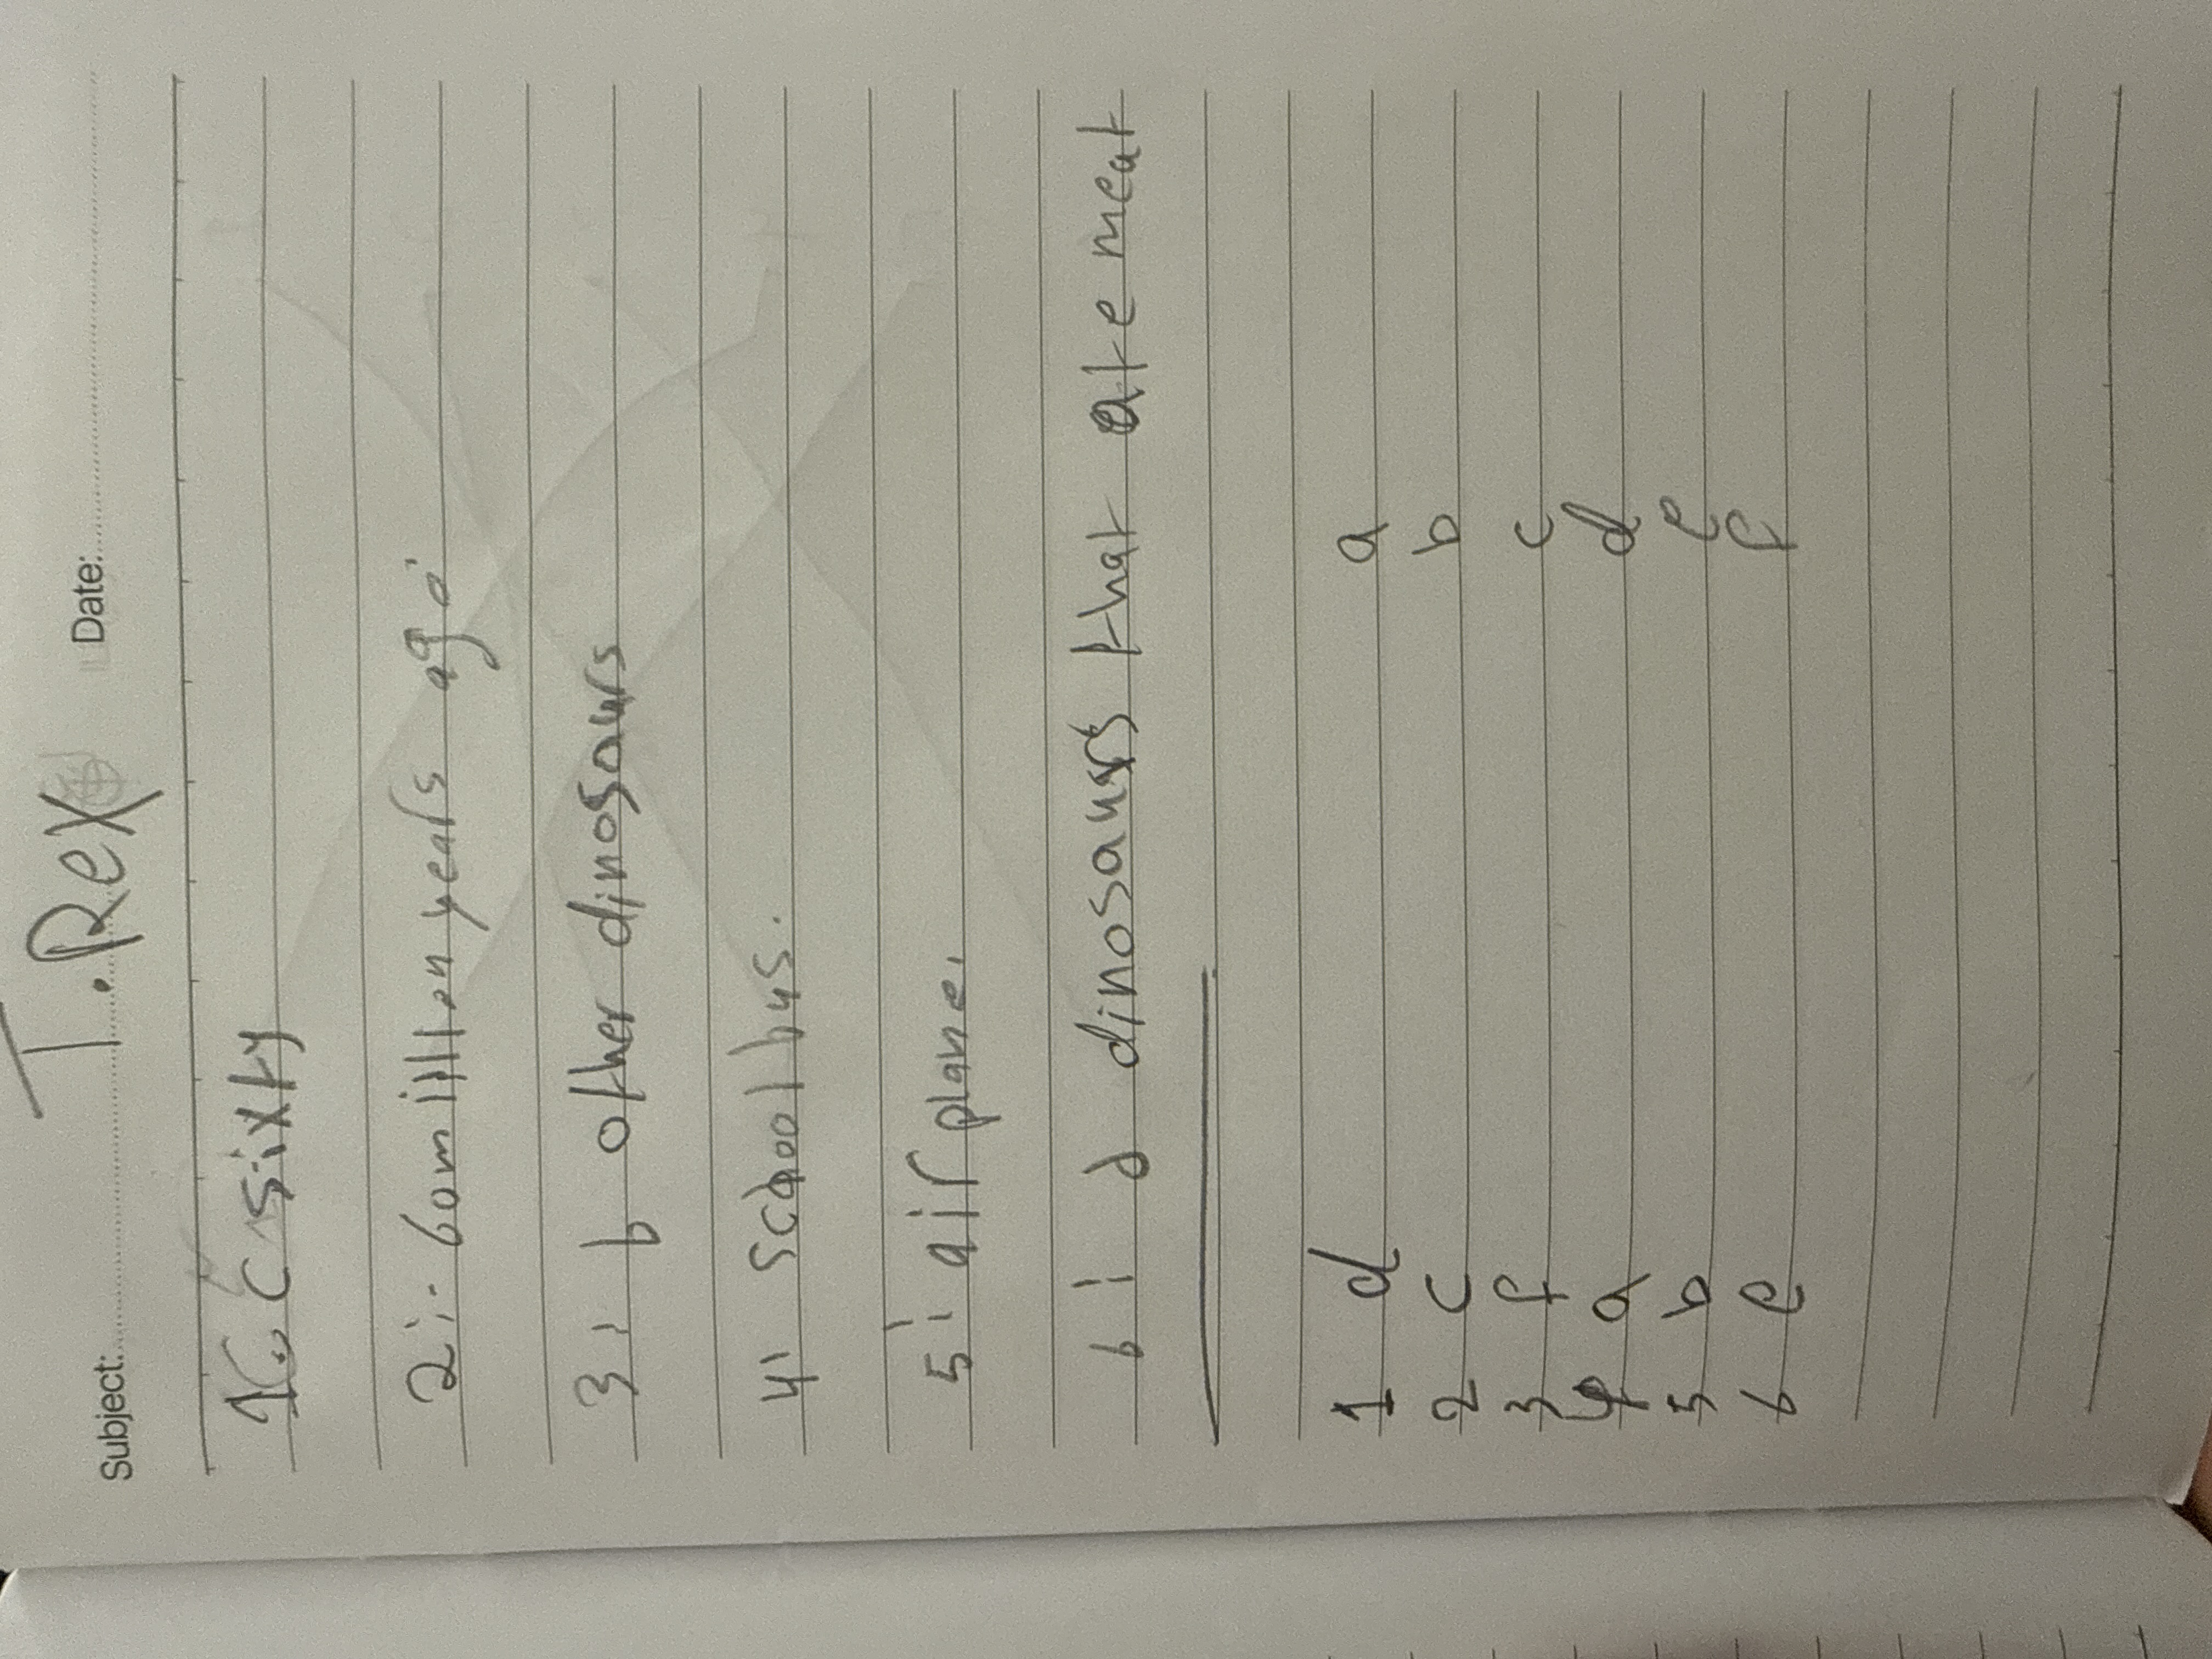 T.Rex
Subject: Date:
1 c sixty
2:- 60 million years ago.
3: b other dinosaurs
4: school bus.
5: airplane.
6: d dinosaurs that ate meat
1 d a
2 c b
3 f c
4 a d
5 b e
6 e f